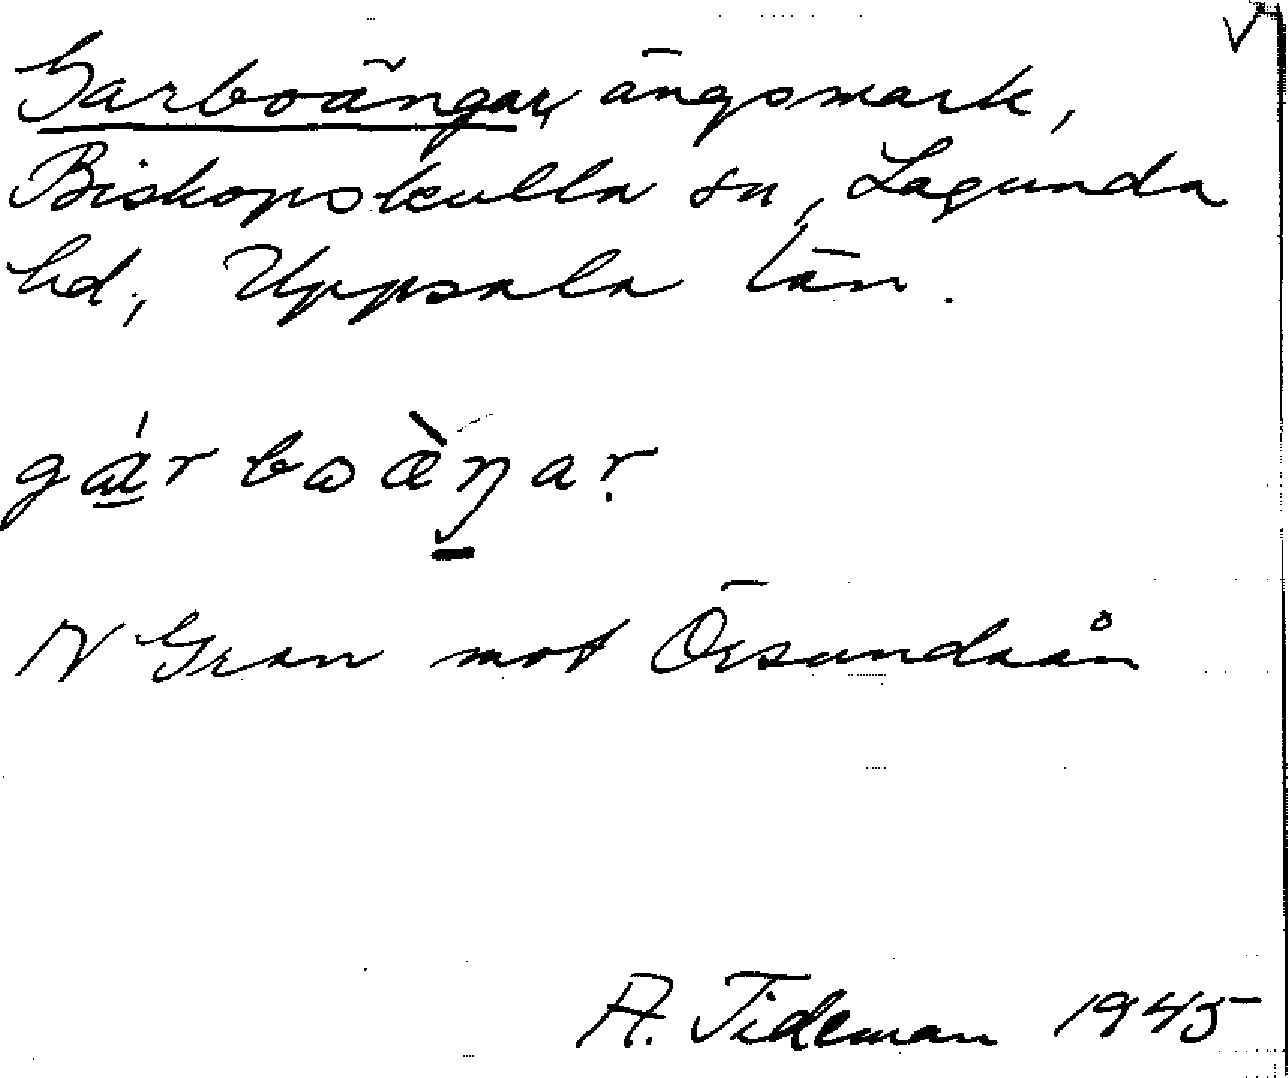 Garboängar, ängsmark,
Biskopskulla sn, Lagunda
hd, Uppsala län.
gárboæ̀ŋar
N Gran mot Örsundaån
A. Tideman 1945